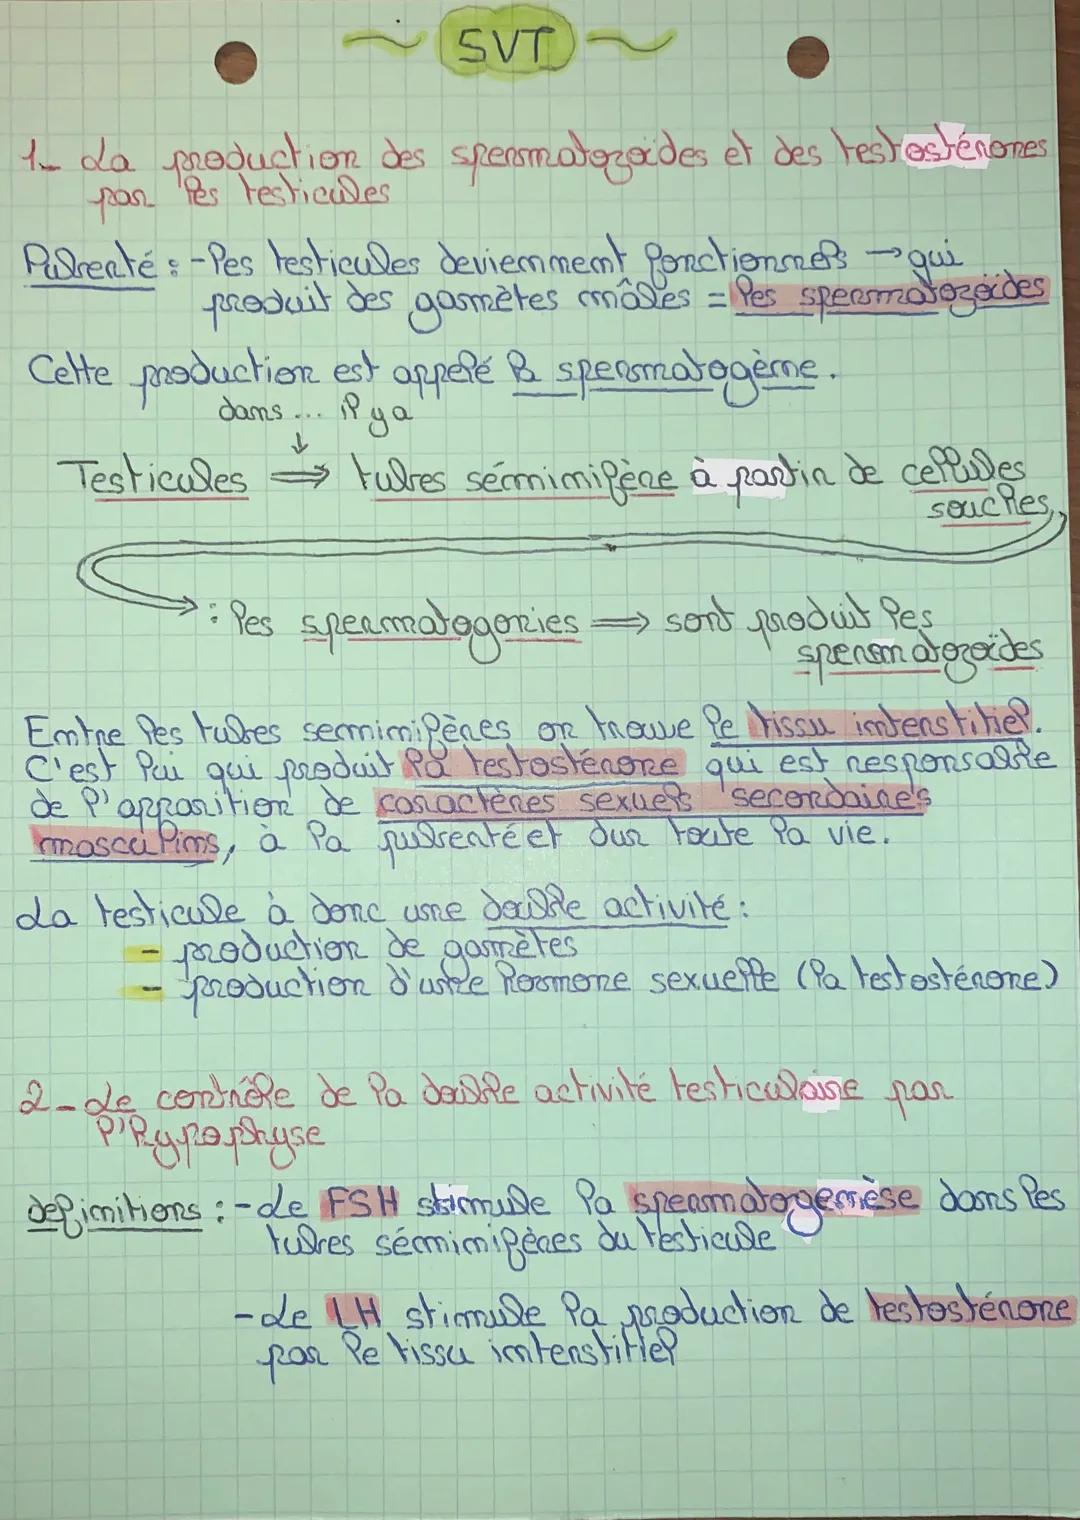 SVT
1- La production des spermatozoïdes et des testostérones
par les testicules
Puberté : - les testicules deviennent fonctionnels → qui
produit des gamètes mâles = les spermatozoïdes
Cette production est appelé la spermatogène.
dans ... il y a
↓
Testicules ⇒ tubes séminifère à partir de cellules
souches,
: les spermatogonies ⇒ sont produit les
spermatozoïdes
Entre les tubes seminifères on trouve le tissu interstitiel.
C'est lui qui produit la testostérone qui est responsable
de l'apparition de caractères sexuels secondaires
masculins, à la puberté et dur toute la vie.
La testicule à donc une double activité :
- production de gamètes
- production d'une hormone sexuelle (la testostérone)
2- Le contrôle de la double activité testiculaire par
l'hypophyse
definitions : - Le FSH stimule la spermatogenèse dans les
tubes séminifères du testicule
- Le LH stimule la production de testostérone
par le tissu interstitiel